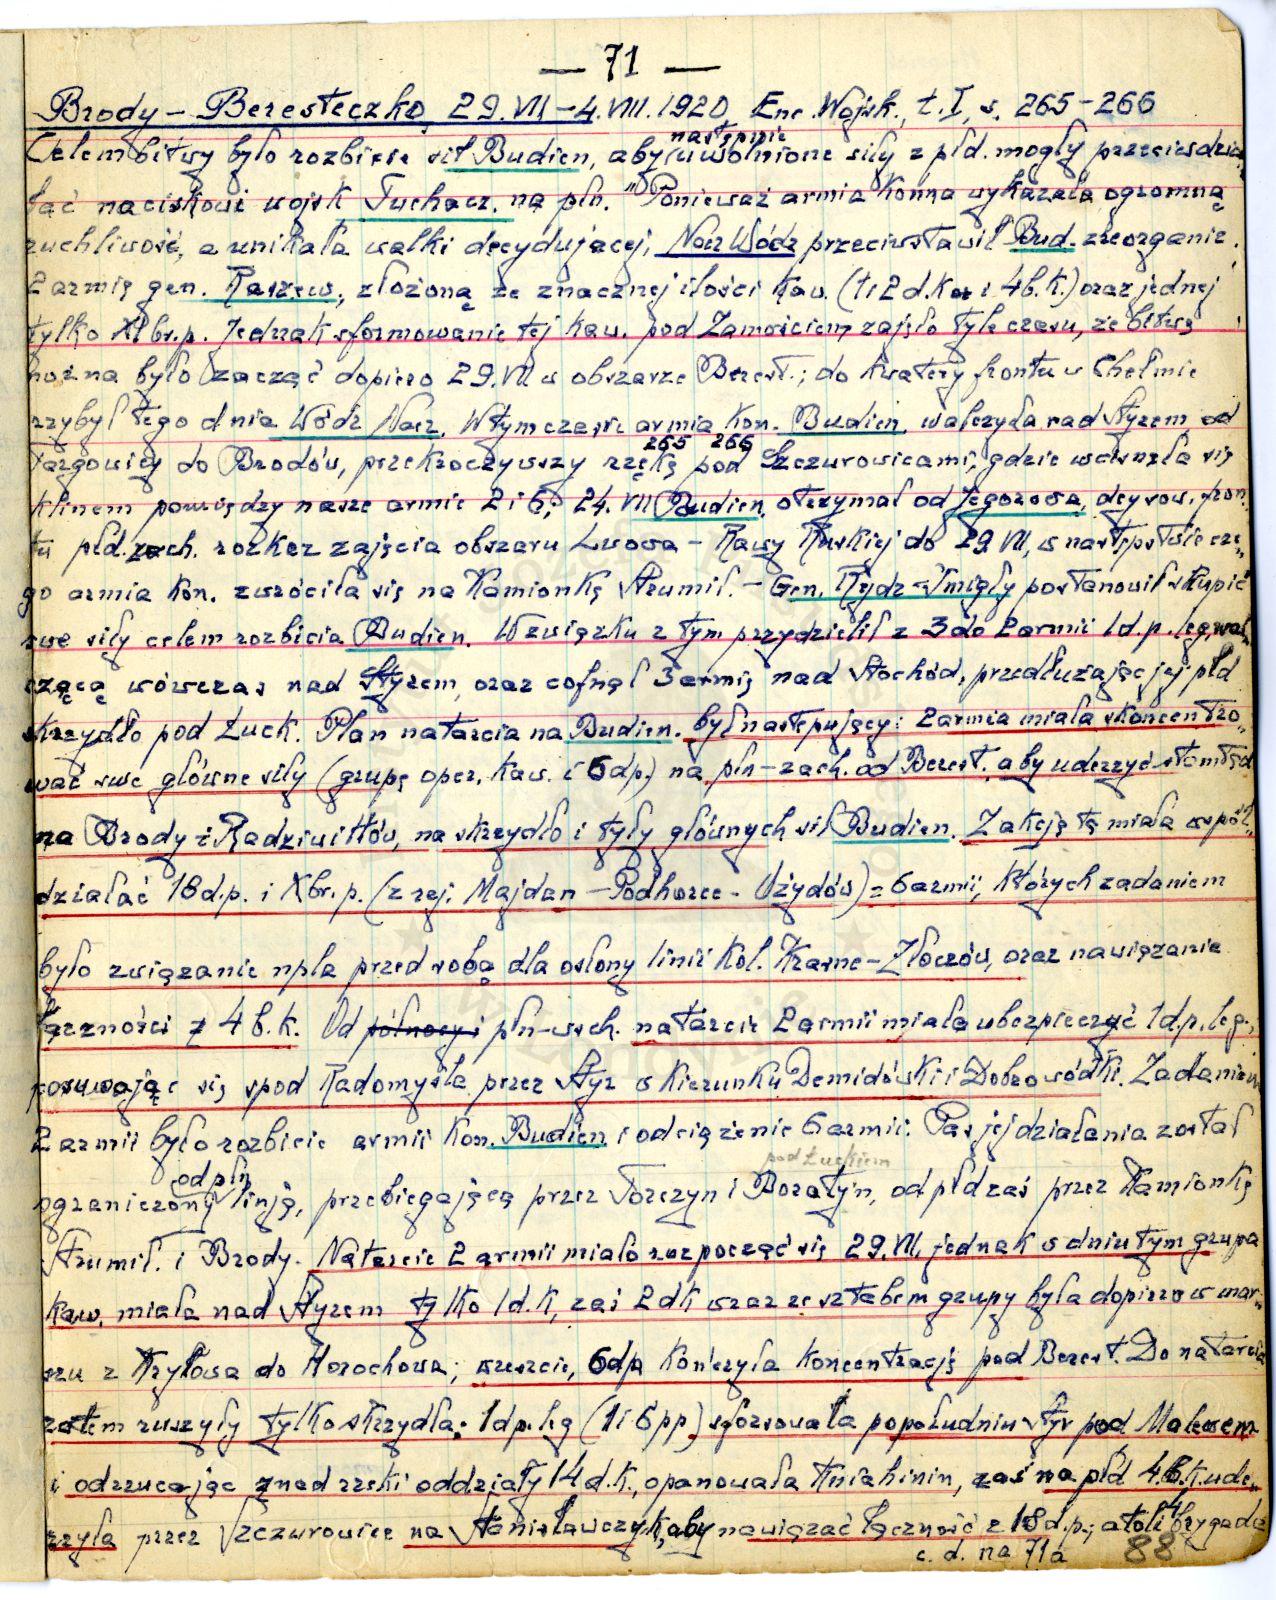 — 71 —
Brody – Beresteczko 29.VII – 4.VIII.1920, Enc. Wojsk., t. I, s. 265–266
następnie
Celem bitwy było rozbicie sił Budien., aby uwolnione siły z płd. mogły przeciwdzia
łać naciskowi wojsk Tuchacz. na płn. "Ponieważ armia konna wykazała ogromną
ruchliwość, a unikała walki decydującej, Nacz Wódz przeciwstawił Bud. zreorganiz.
2 armię gen. Raszew., złożoną ze znacznej ilości kaw. (1 i 2 d.k. i 4 b.k.) oraz jednej
tylko XI br.p. Jednak sformowanie tej kaw. pod Zamościem zajęło tyle czasu, że bitwę
można było zacząć dopiero 29.VII w obszarze Berest.; do kwatery frontu w Chełmie
przybył tego dnia Wódz Nacz. W tym czasie armia kon. Budien. walczyła nad Styrem od
265 266
Targowicy do Brodów, przekroczywszy rzekę pod Szczurowicami, gdzie wcisnęła się
klinem pomiędzy nasze armie 2 i 6. 24.VII Budien. otrzymał od Jegorowa, dcy sow. fron
tu płd.zach. rozkaz zajęcia obszaru Lwowa – Rawy Ruskiej do 29 VII, w następstwie cze„
go armia kon. zwróciła się na Kamionkę Strumił. – Gen. Rydz-Śmigły postanowił skupić
swe siły celem rozbicia Budien. W związku z tym przydzielił z 3 do 2 armii 1 d.p. leg, wal„
czącą wówczas nad Styrem, oraz cofnął 3 armię nad Stochód, przedłużając jej płd
skrzydło pod Łuck. Plan natarcia na Budien. był następujący: 2 armia miała skoncentro„
wać swe główne siły (grupę oper. kaw. i 6 dp.) na płn-zach. od Berest. aby uderzyć stamtąd
na Brody i Radziwiłłów, na skrzydło i tyły głównych sił Budien. Z akcją tą miała współ„
działać 18 d.p. i X br. p. (z rej. Majdan – Podhorce – Użydów) = 6 armii, których zadaniem
było związanie npla przed sobą dla osłony linii kol. Krasne – Złoczów, oraz nawiązanie
łączności z 4 b. k. Od północy i płn-wsch. natarcie 2 armii miała ubezpieczyć 1 d.p. leg.,
posuwając się spod Radomyśla przez Styr w kierunku Demidówki i Dobrowódki. Zadaniem
2 armii było rozbicie armii kon. Budien i odciążenie 6 armii. Pas jej działania został
od płn pod Łuckiem
ograniczony linją, przebiegającą przez Torczyn i Boratyn, od płd zaś przez Kamionkę
Strumił. i Brody. Natarcie 2 armii miało rozpocząć się 29.VII, jednak w dniu tym grupa
kaw. miała nad Styrem tylko 1 d.k, zaś 2 dk wraz ze sztabem grupy była dopiero w mar„
szu z Kryłowa do Horochowa; wreszcie, 6 dp kończyła koncentrację pod Berest. Do natarcia
zatem ruszyły tylko skrzydła: 1 dp. leg (1 i 6 pp) sforsowała popołudniu Styr pod Malewem
i odrzucając znad rzeki oddziały 14 d.k., opanowała Kniahinin, zaś na płd 4 b.k. ude„
rzyła przez Szczurowice na Stanisławczyk, aby nawiązać łączność z 18 d.p.; atoli 4 brygada
c. d. na 71a 88